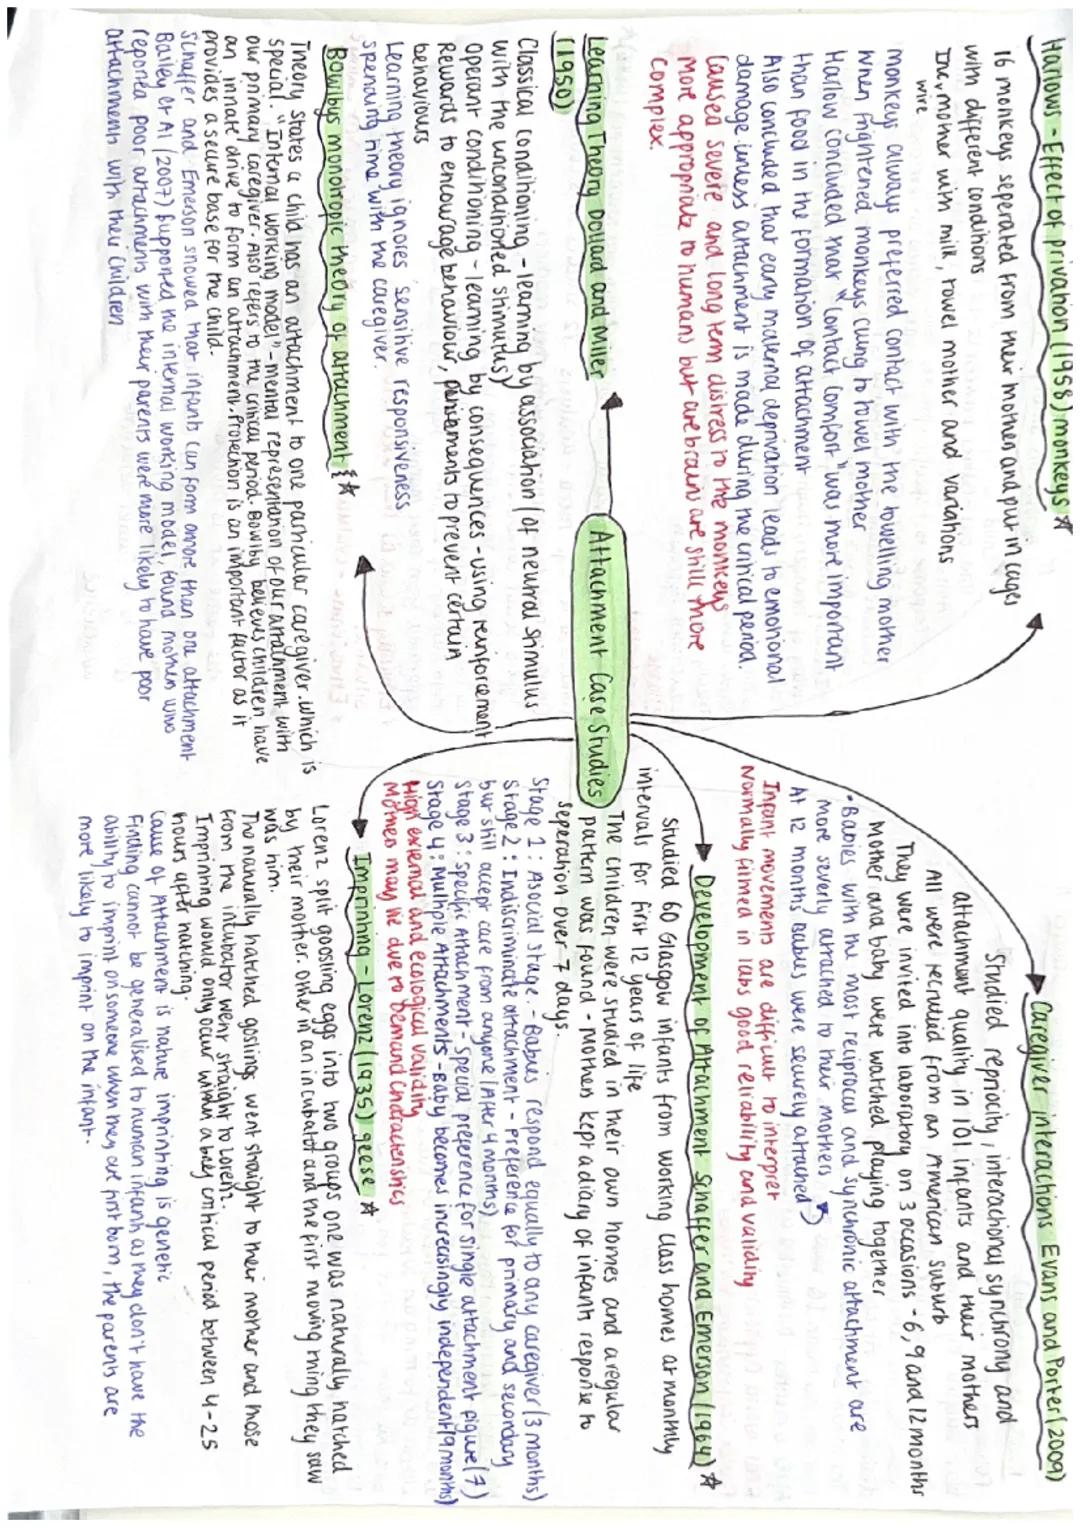 Attachment Case Studies
Harlows - Effect of privation (1958) monkeys ☆
16 monkeys seperated from their mothers and put in cages
with different conditions
Inc, mother with milk, towel mother and variations
wire
monkeys always preferred contact with the towelling mother
when frightened monkeys clung to towel mother
Harlow concluded that "contact comfort" was more important
than food in the formation of attachment
Also concluded that early maternal deprivation leads to emotional
damage unless attachment is made during the critical period.
Caused severe and long term distress to the monkeys
More appropriate to humans but are brains are still more
complex.
Learning Theory Dollard and Miller
(1950)
Classical conditioning - learning by association (of neutral stimulus
with the unconditioned stimulus)
operant conditioning - learning by consequences - using reinforcement
Rewards to encourage behaviour, punishments to prevent certain
behaviours
Learning theory ignores sensitive responsiveness
spending time with the caregiver.
Bowlbys monotropic theory of attachment ☆
Theory states a child has an attachment to one particular caregiver. which is
special. "Internal working model" - mental representation of our attachment with
our primary caregiver. Also refers to the critical period. Bowlby believes children have
an innate drive to form an attachment. Protection is an important factor as it
provides a secure base for the child.
Schaffer and Emerson showed that infants can form more than one attachment
Bailey et Al (2007) supported the internal working model, found mothers who
reported poor attachments with their parents were more likely to have poor
attachments with their children
Caregiver interactions Evans and Porter (2009)
Studied reprocity, interactional synchrony and
attachment quality in 101 infants and their mothers
All were recruited from an American suburb
They were invited into laboratory on 3 occasions - 6, 9 and 12 months
Mother and baby were watched playing together
• Babies with the most reciprocal and synchronic attachment are
more severly attached to their mothers
At 12 months Babies were securely attached
Infant movements are difficult to interpret
Normally filmed in labs good reliability and validity
Development of Attachment Schaffer and Emerson (1964) ☆
Studied 60 Glasgow infants from working class homes at monthly
intervals for first 12 years of life
The children were studied in their own homes and a regular
pattern was found - Mothers kept a diary of infants response to
seperation over 7 days.
Stage 1: Asocial stage. - Babies respond equally to any caregiver (3 months)
Stage 2: Indiscriminate attachment - Preference for primary and secondary
but still accept care from anyone (After 4 months)
Stage 3: Specific Attachment - Special preference for single attachment figure (7)
Stage 4: Multiple Attachments - Baby becomes increasingly independent (9 months)
High external and ecological validity
Mothers may lie due to Demand characteristics
Imprinting - Lorenz (1935) geese ☆
Lorenz split gosling eggs into two groups one was naturally hatched
by their mother. other in an incubator and the first moving thing they saw
was him.
The naturally hatched goslings went straight to their mother and those
from the incubator went straight to Lorenz.
Imprinting would only occur within a brief critical period between 4-25
hours after hatching.
Cause of Attachment is nature imprinting is genetic
Finding cannot be generalised to human infants as they don't have the
ability to imprint on someone when they are first born, the parents are
more likely to imprint on the infant.